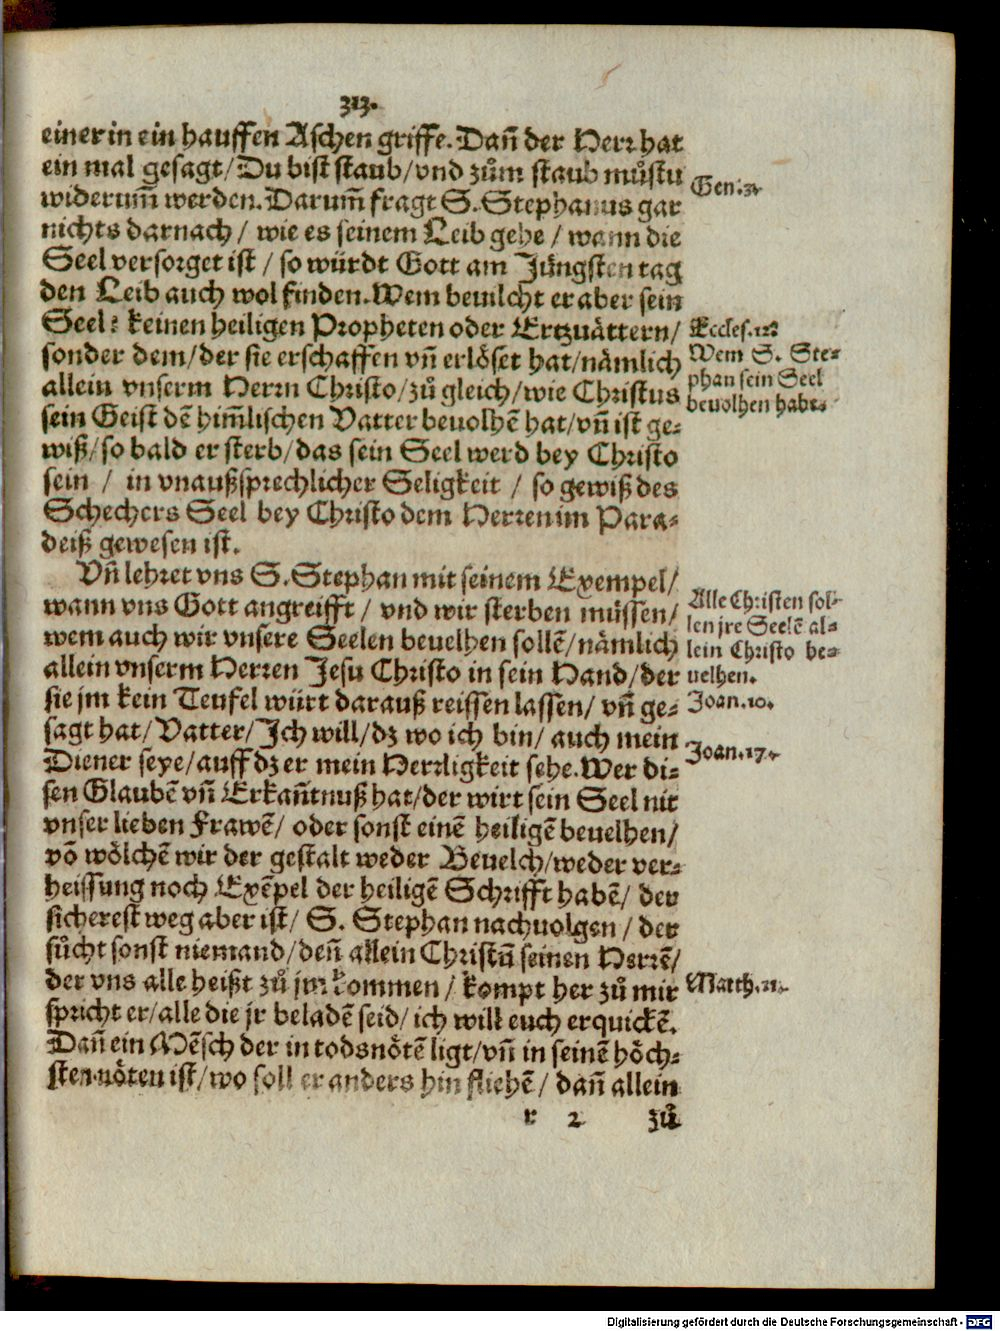 313.
einer in ein hauffen Aschen griffe. Dañ der Herr hat
ein mal gesagt/Du bist staub/vnd zům staub můstu
Gen.3.
widerum̃ werden. Darum̃ fragt S. Stephanus gar
nichts darnach/ wie es seinem Leib gehe/ wann die
Seel versorget ist/ so würdt Gott am Jüngsten tag
den Leib auch wol finden. Wem beuilcht er aber sein
Seel? keinen heiligen Propheten oder Ertzuättern/
Eccles.12.
sonder dem/der sie erschaffen vñ erlöset hat/nämlich
allein vnserm Herrn Christo/zů gleich/wie Christus
sein Geist dẽ him̃lischen Vatter beuolhẽ hat/vñ ist ge-
wiß/so bald er sterb/das sein Seel werd bey Christo
sein / in vnaußsprechlicher Seligkeit / so gewiß des
Schechers Seel bey Christo dem Herren im Para-
deiß gewesen ist.
Wem S. Ste-
phan sein Seel
beuolhen habe.
Vñ lehret vns S. Stephan mit seinem Exempel/
wann vns Gott angreifft/ vnd wir sterben müssen/
wem auch wir vnsere Seelen beuelhen sollẽ/nämlich
allein vnserm Herren Jesu Christo in sein Hand/der
sie jm kein Teufel würt darauß reissen lassen/ vñ ge-
Alle Christen sol-
len jre Seelẽ al-
lein Christo be-
uelhen.
Joan.10.
sagt hat/Vatter/Ich will/dz wo ich bin/ auch mein
Diener seye/auff dz er mein Herrligkeit sehe. Wer di-
Joan.17.
sen Glaubẽ vñ Erkañtnuß hat/der wirt sein Seel nit
vnser lieben Frawẽ/ oder sonst einẽ heiligẽ beuelhen/
võ wölchẽ wir der gestalt weder Beuelch/weder ver-
heissung noch Exẽpel der heiligẽ Schrifft habẽ/ der
sicherest weg aber ist/ S. Stephan nachuolgen / der
sůcht sonst niemand/deñ allein Christũ seinen Herrẽ/
der vns alle heißt zů jm kommen/ kompt her zů mir
Matth.11.
spricht er/alle die jr beladẽ seid/ ich will euch erquickẽ.
Dañ ein Mẽsch der in todsnötẽ ligt/vñ in seinẽ höch-
sten nöten ist/wo soll er anders hin fliehẽ/ dañ allein
r 2 zů
Digitalisierung gefördert durch die Deutsche Forschungsgemeinschaft - DFG